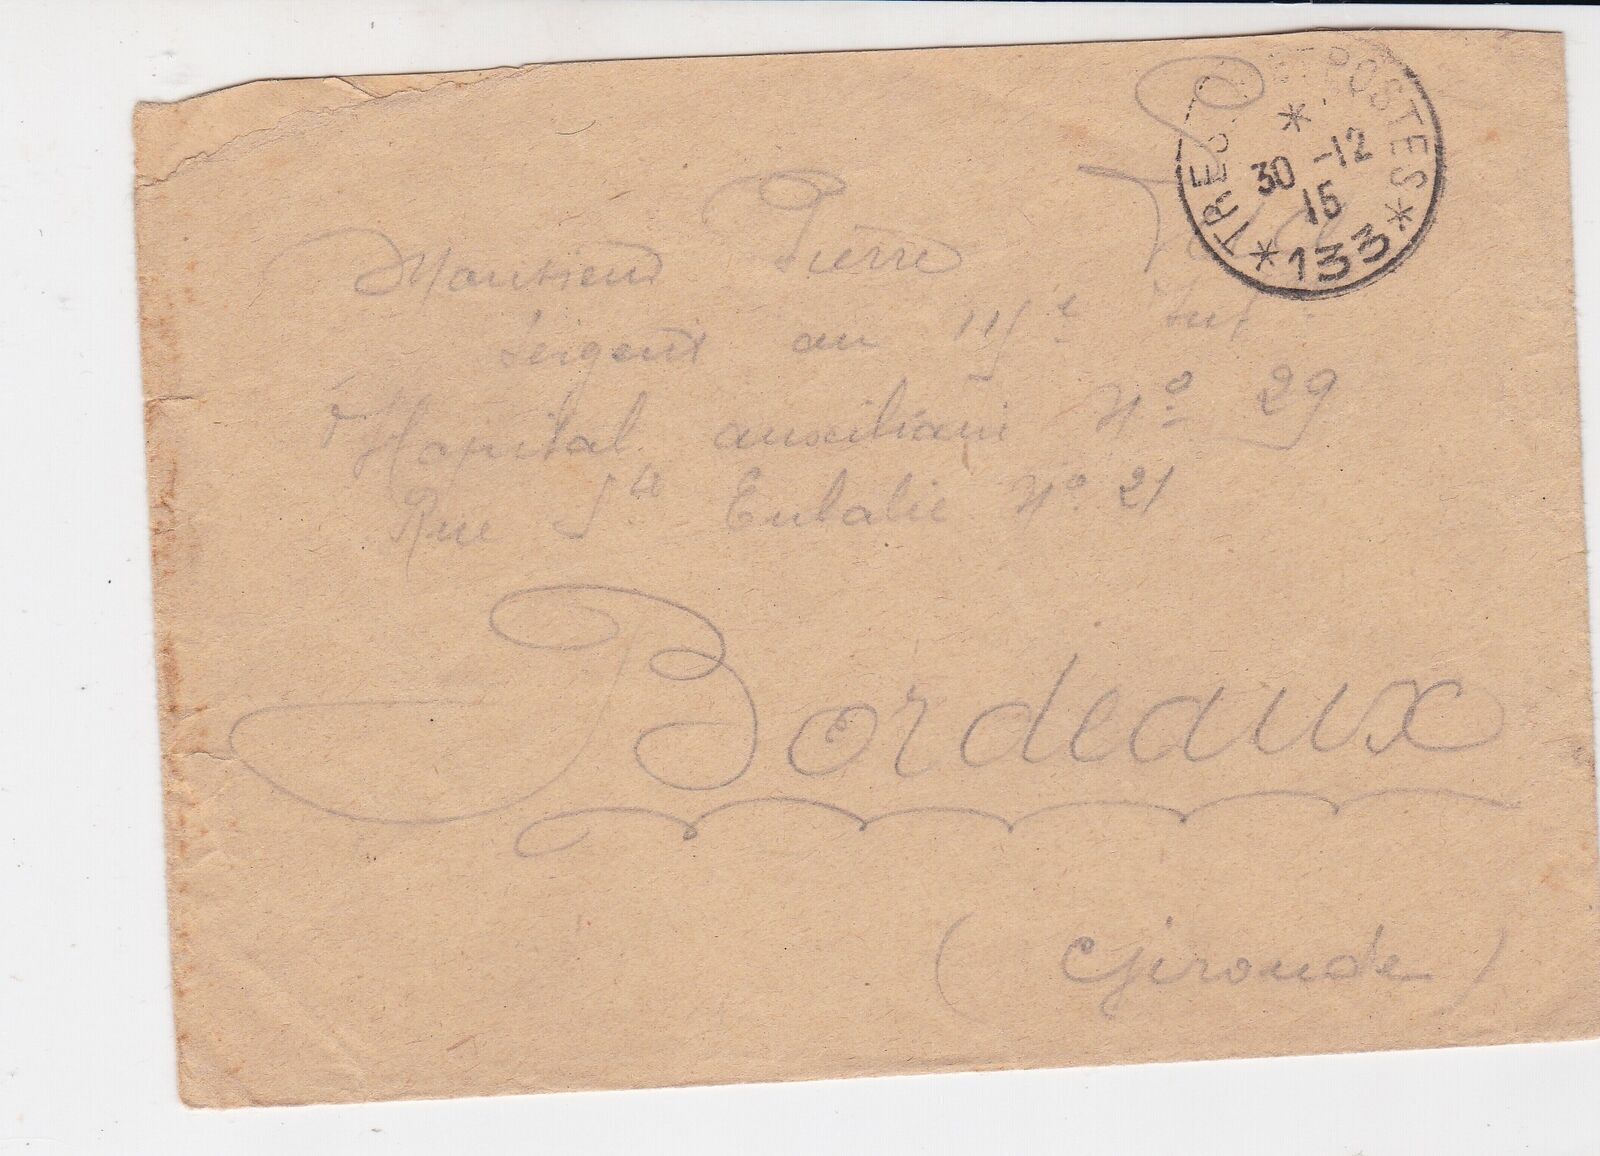 TRESOR ET POSTES
30 -12
15
*133*
Monsieur Pierre
Sergent au 111e Inf
Hopital auxiliaire No 29
Rue Ste Eulalie No 21
Bordeaux
(Gironde)